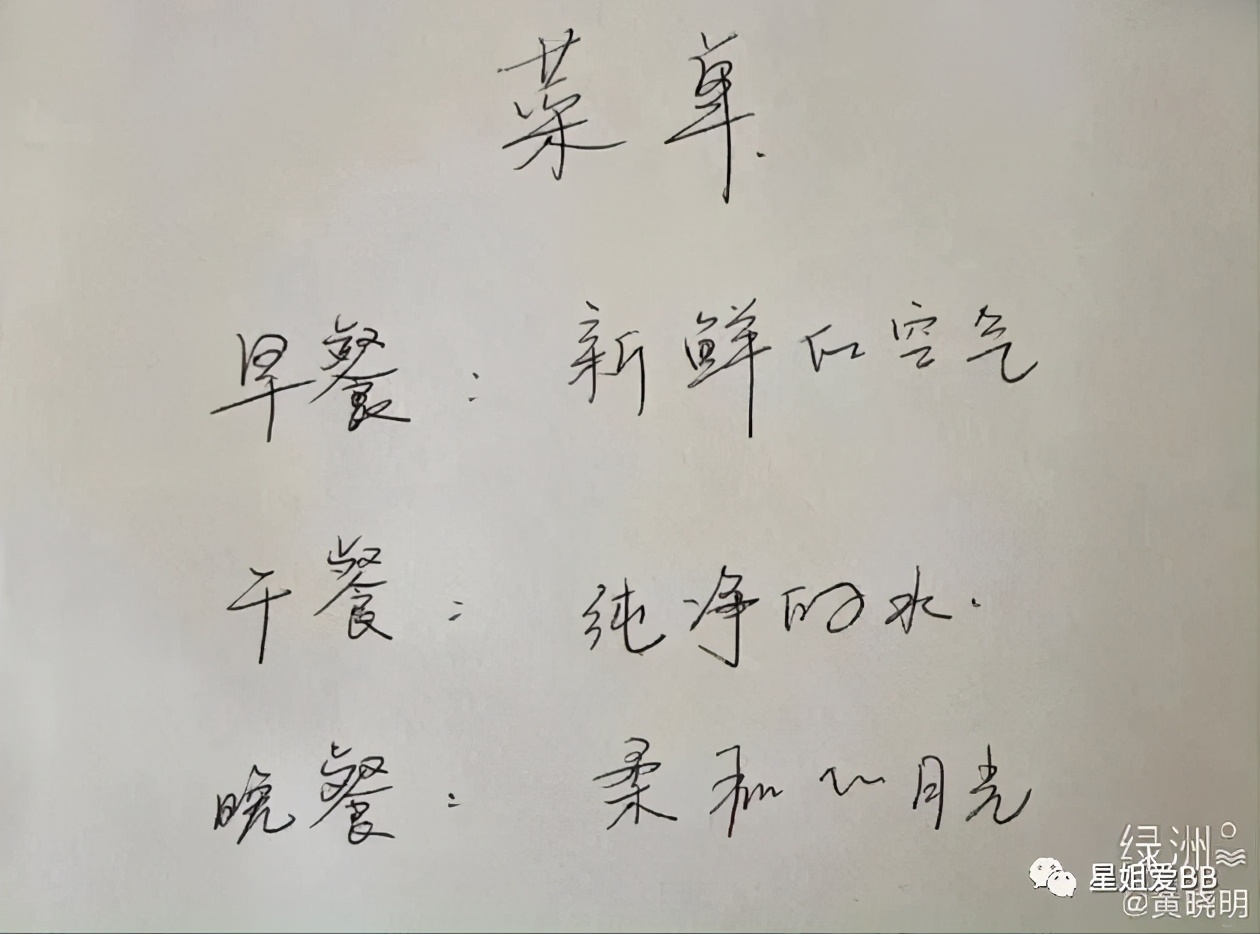 菜单.
早餐：新鲜的空气
午餐：纯净的水.
晚餐：柔和的月光
绿洲
星姐爱BB
@黄晓明